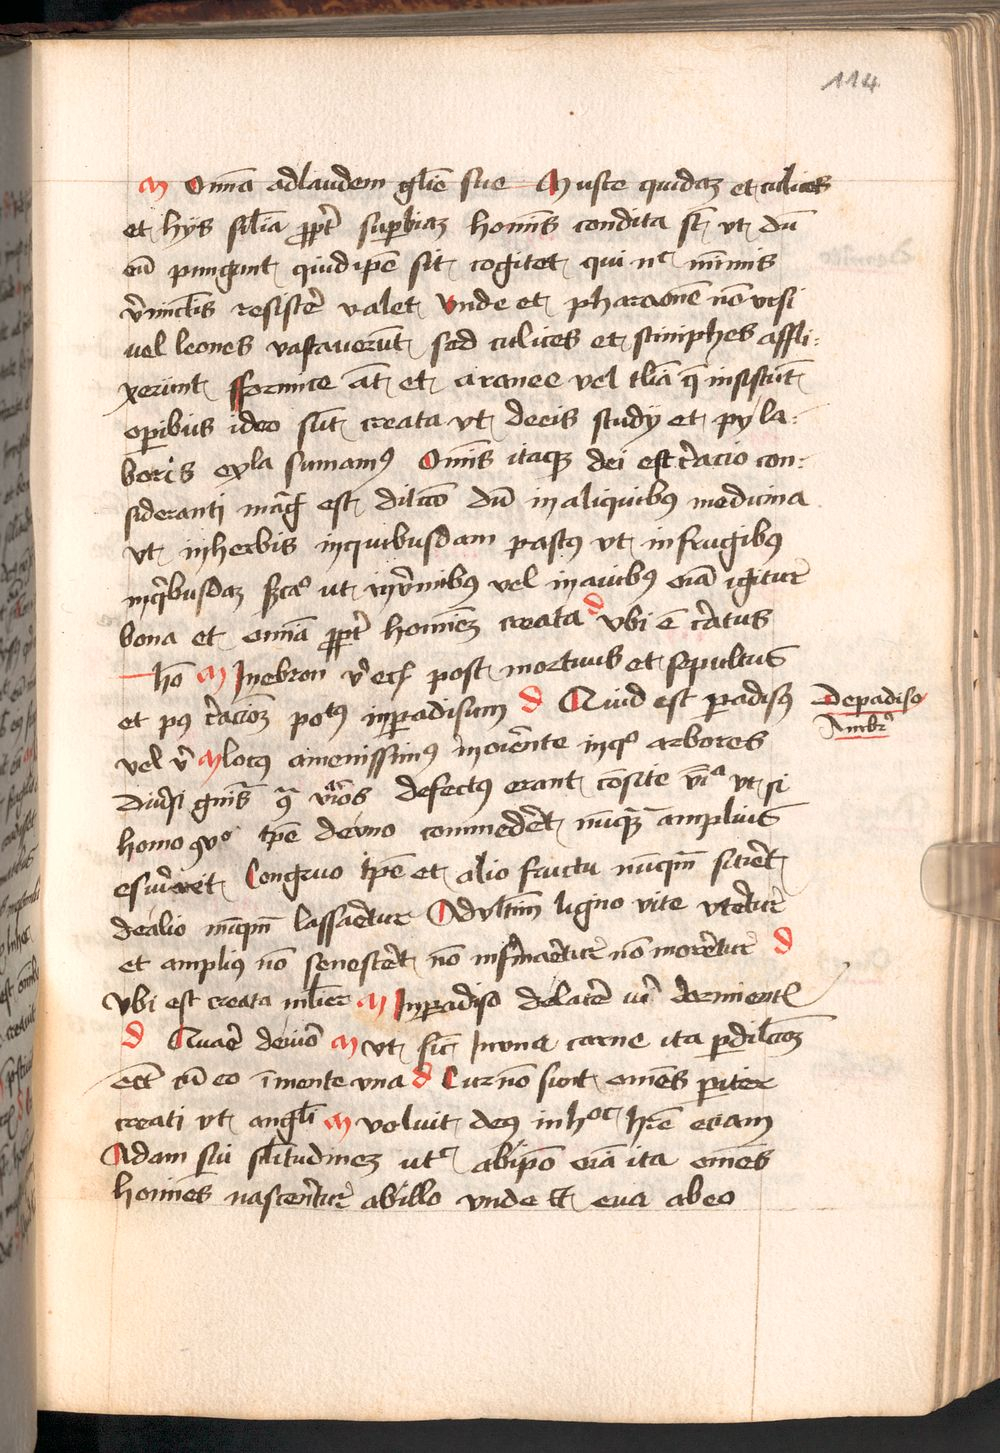 114
M Omnia ad laudem glorie sue Musce quidam et culices
et hys similia propter superbiam hominis condita sunt vt dum
eum pungunt quid ipse sit cogitet qui nec minimis
vermiculis resistere valet Vnde et pharaonem non vrsi
uel leones vastauerunt sed culices et sciniphes affli:
xerunt fformice autem et aranee vel talia que insistunt
operibus ideo sunt creata vt de eis study et py la:
boris exempla sumamus Omnis itaque dei est creacio con:
sideranti magna est dilectio dum in aliquibus medicina
vt in herbis in quibusdam pastus vt in frugibus
in quibusdam ut in vermibus vel in auibus omnia igitur
bona et omnia propter hominem creata d vbi est creatus
homo M In ebron vbi et post mortuus et sepultus
et post creacionem positus in paradisum d Quid est paradisus
De paradiso
Ambr
vel vbi M locus amenissimus in oriente in quo arbores
diuersi generis contra varios defectus erant consite verbi gratia vt si
homo congruo tempore de vno commederet nunquam amplius
esuriret Congruo tempore et alio fructu nunquam sitiret
de alio nunquam lassaretur Ad vltimum ligno vite vteretur
et amplius non senesceret non infirmaretur non moreretur d
Vbi est creata mulier M In paradiso de latere viri dormientis
d Quare de viro M vt sicut In vna carne ita per dilectionem
esset cum eo in mente vna d Cur non sunt omnes pariter
creati vt angeli M Voluit deus in hoc habere eciam
Adam sui similitudinem ut ab ipso omnia ita omnes
homines nascerentur ab illo vnde et eua ab eo